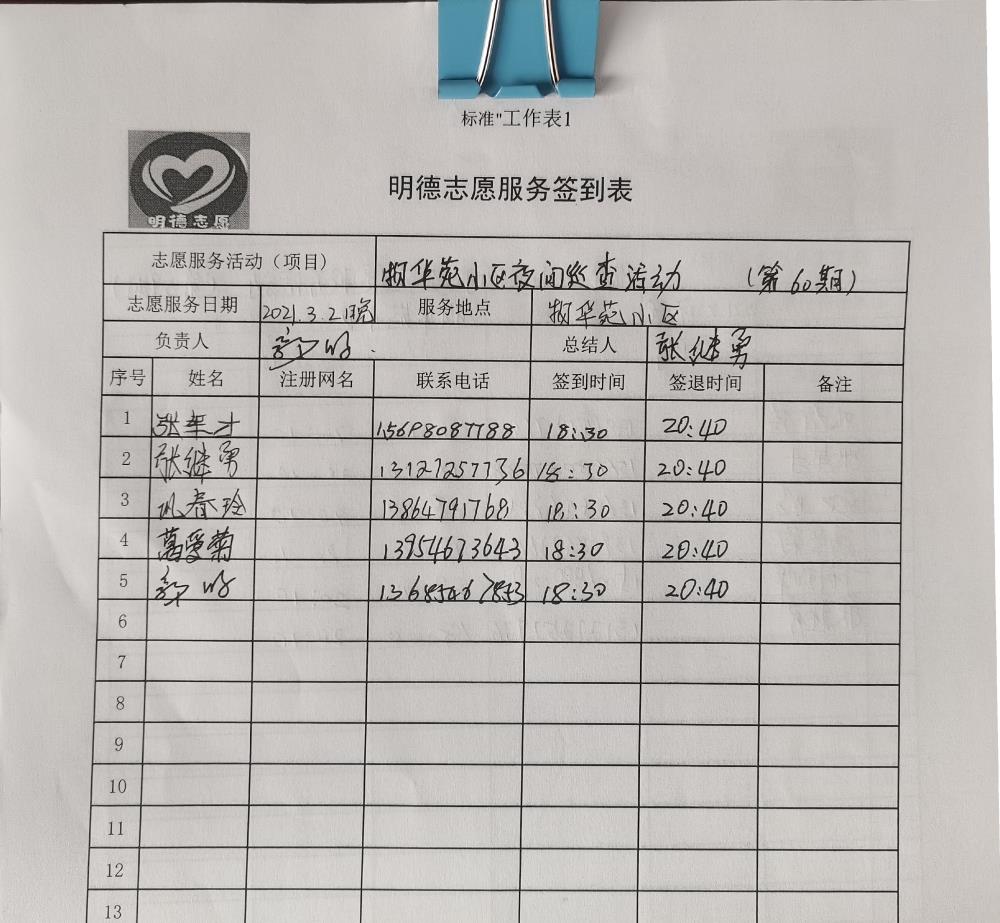 标准"工作表1
明德志愿
明德志愿服务签到表
志愿服务活动（项目） 物华苑小区夜间巡查活动 （第60期）
志愿服务日期 2021.3.2晚 服务地点 物华苑小区
负责人 总结人 张继勇
序号 姓名 注册网名 联系电话 签到时间 签退时间 备注
1 15698087788 18:30 20:40
2 张继勇 13127257736 18:30 20:40
3 春玲 13864791768 18:30 20:40
4 葛爱菊 13954673643 18:30 20:40
5 13685467853 18:30 20:40
6
7
8
9
10
11
12
13